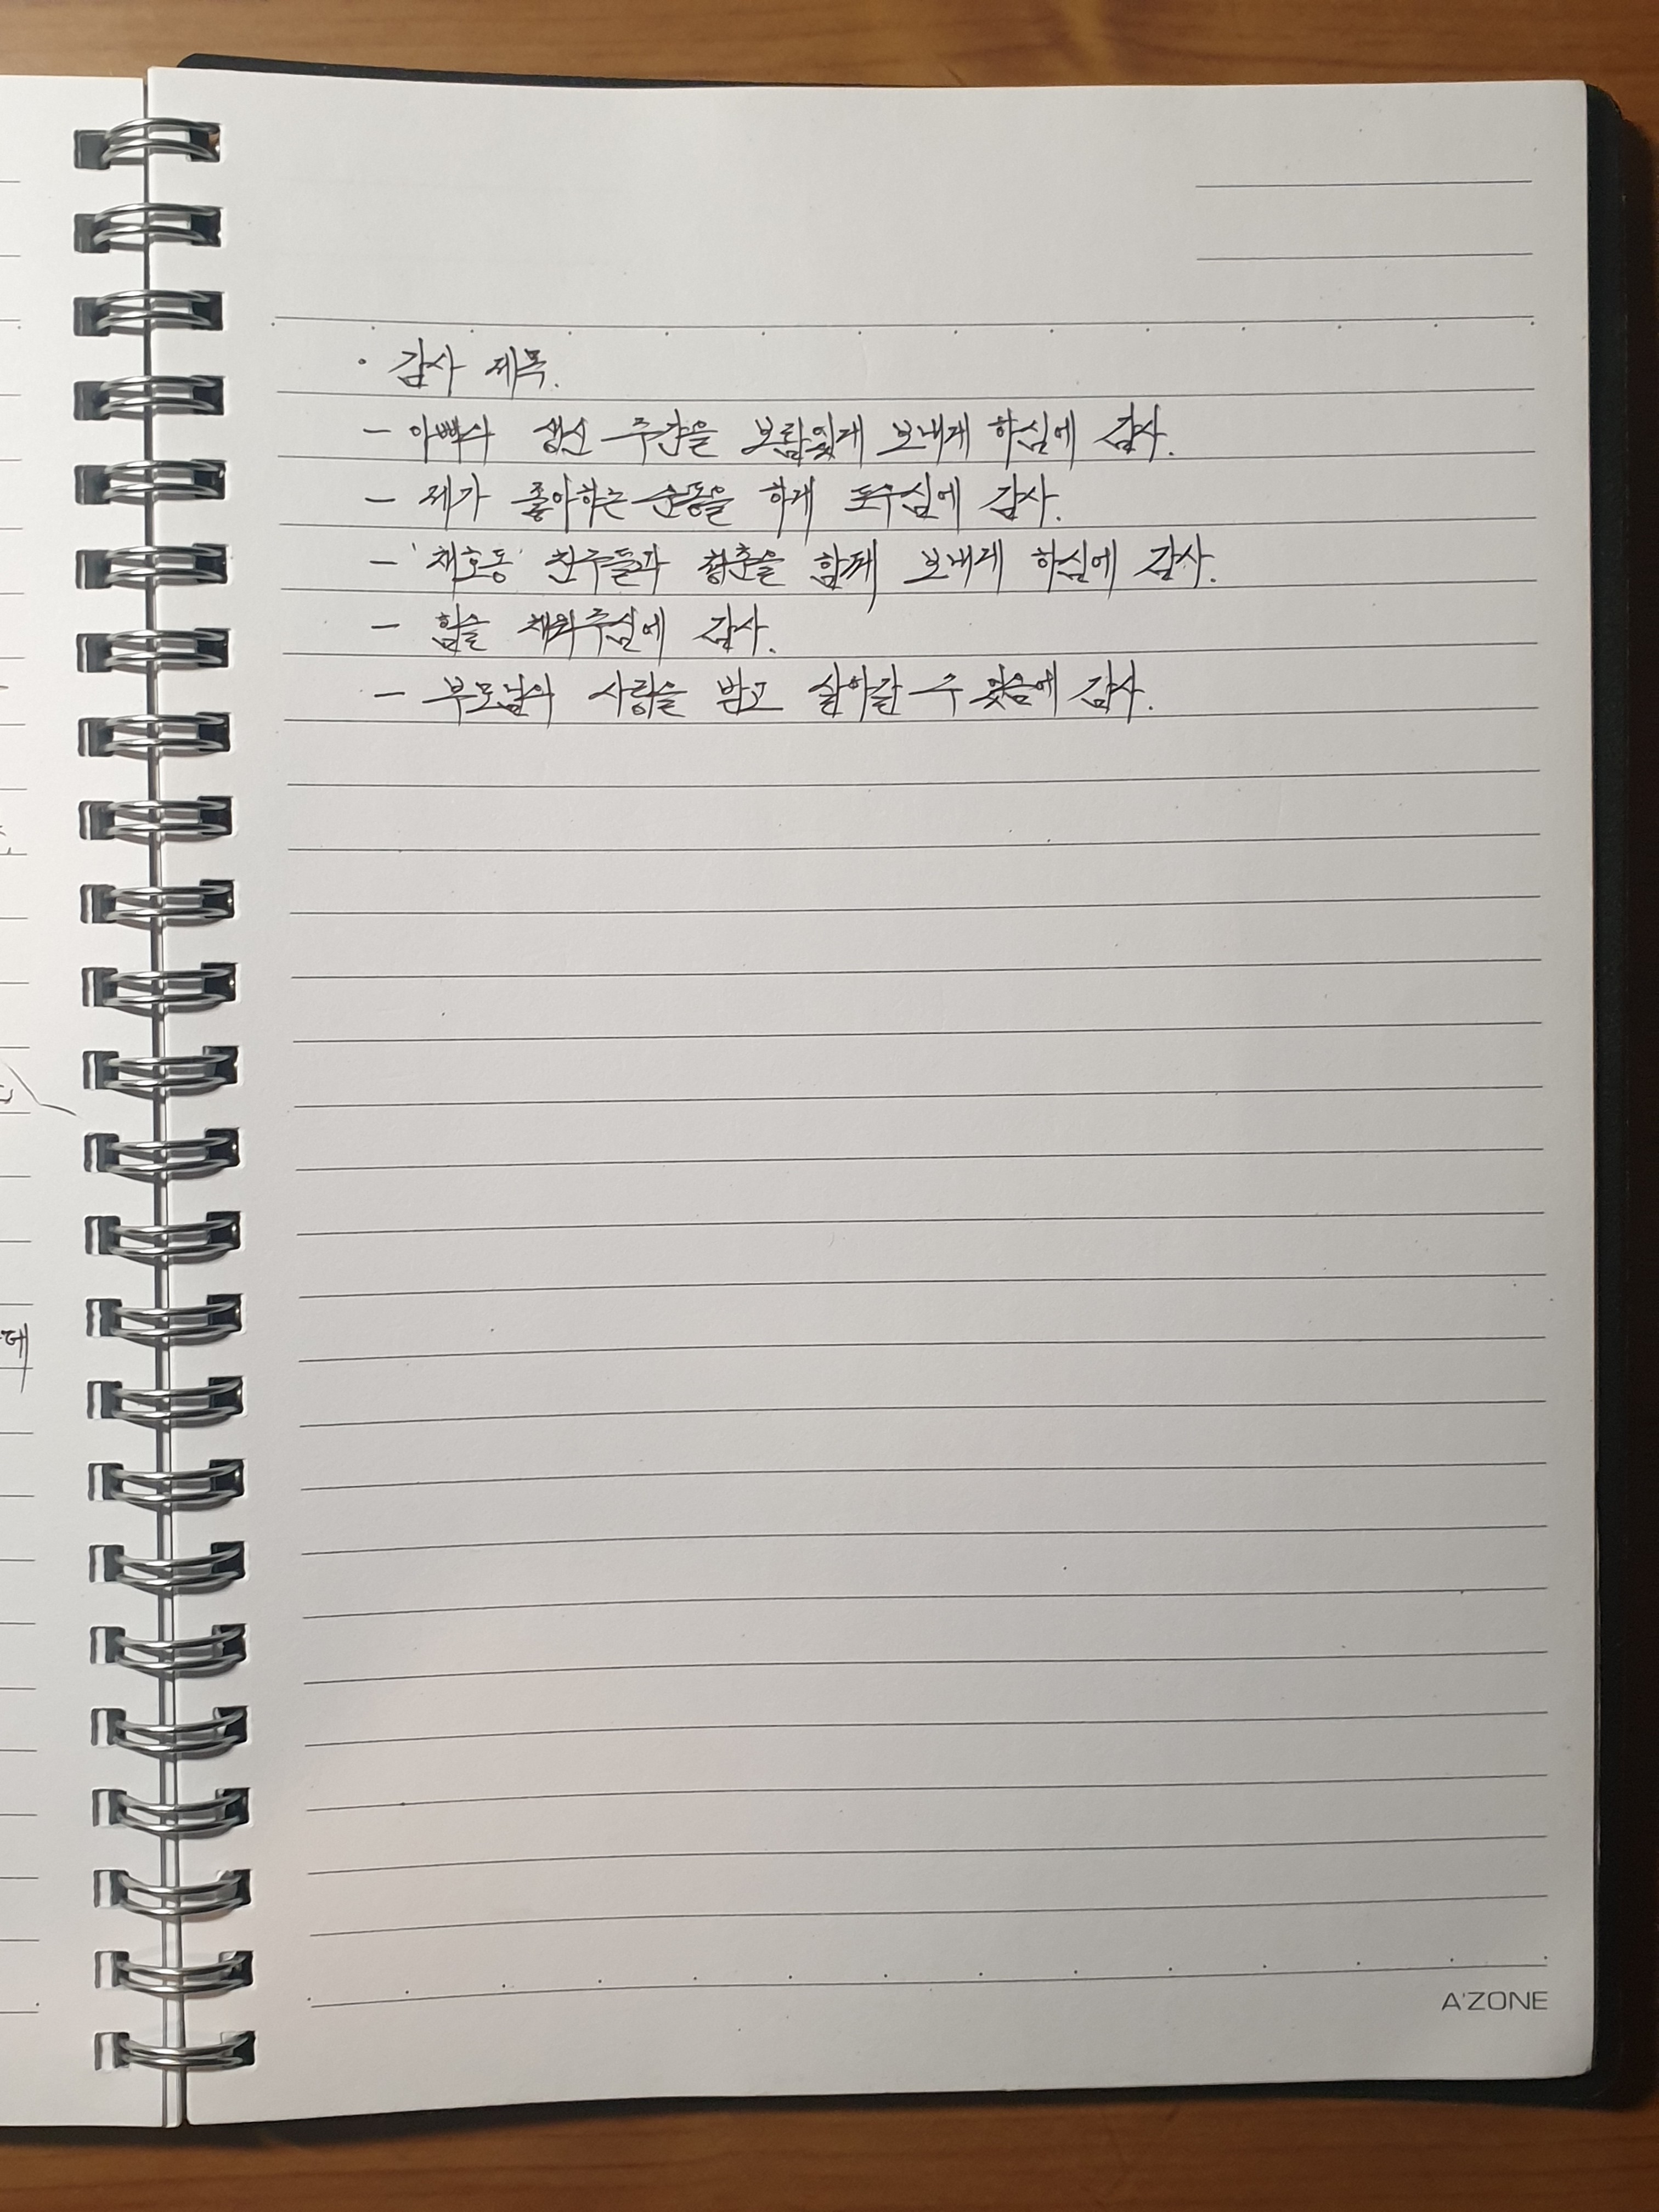 · 감사 제목.
- 아빠의 생신 주간을 보람있게 보내게 하심에 감사.
- 제가 좋아하는 운동을 하게 도우심에 감사.
- '채호동' 친구들과 청춘을 함께 보내게 하심에 감사.
- 힘을 채워주심에 감사.
- 부모님의 사랑을 받고 살아갈 수 있음에 감사.
A'ZONE